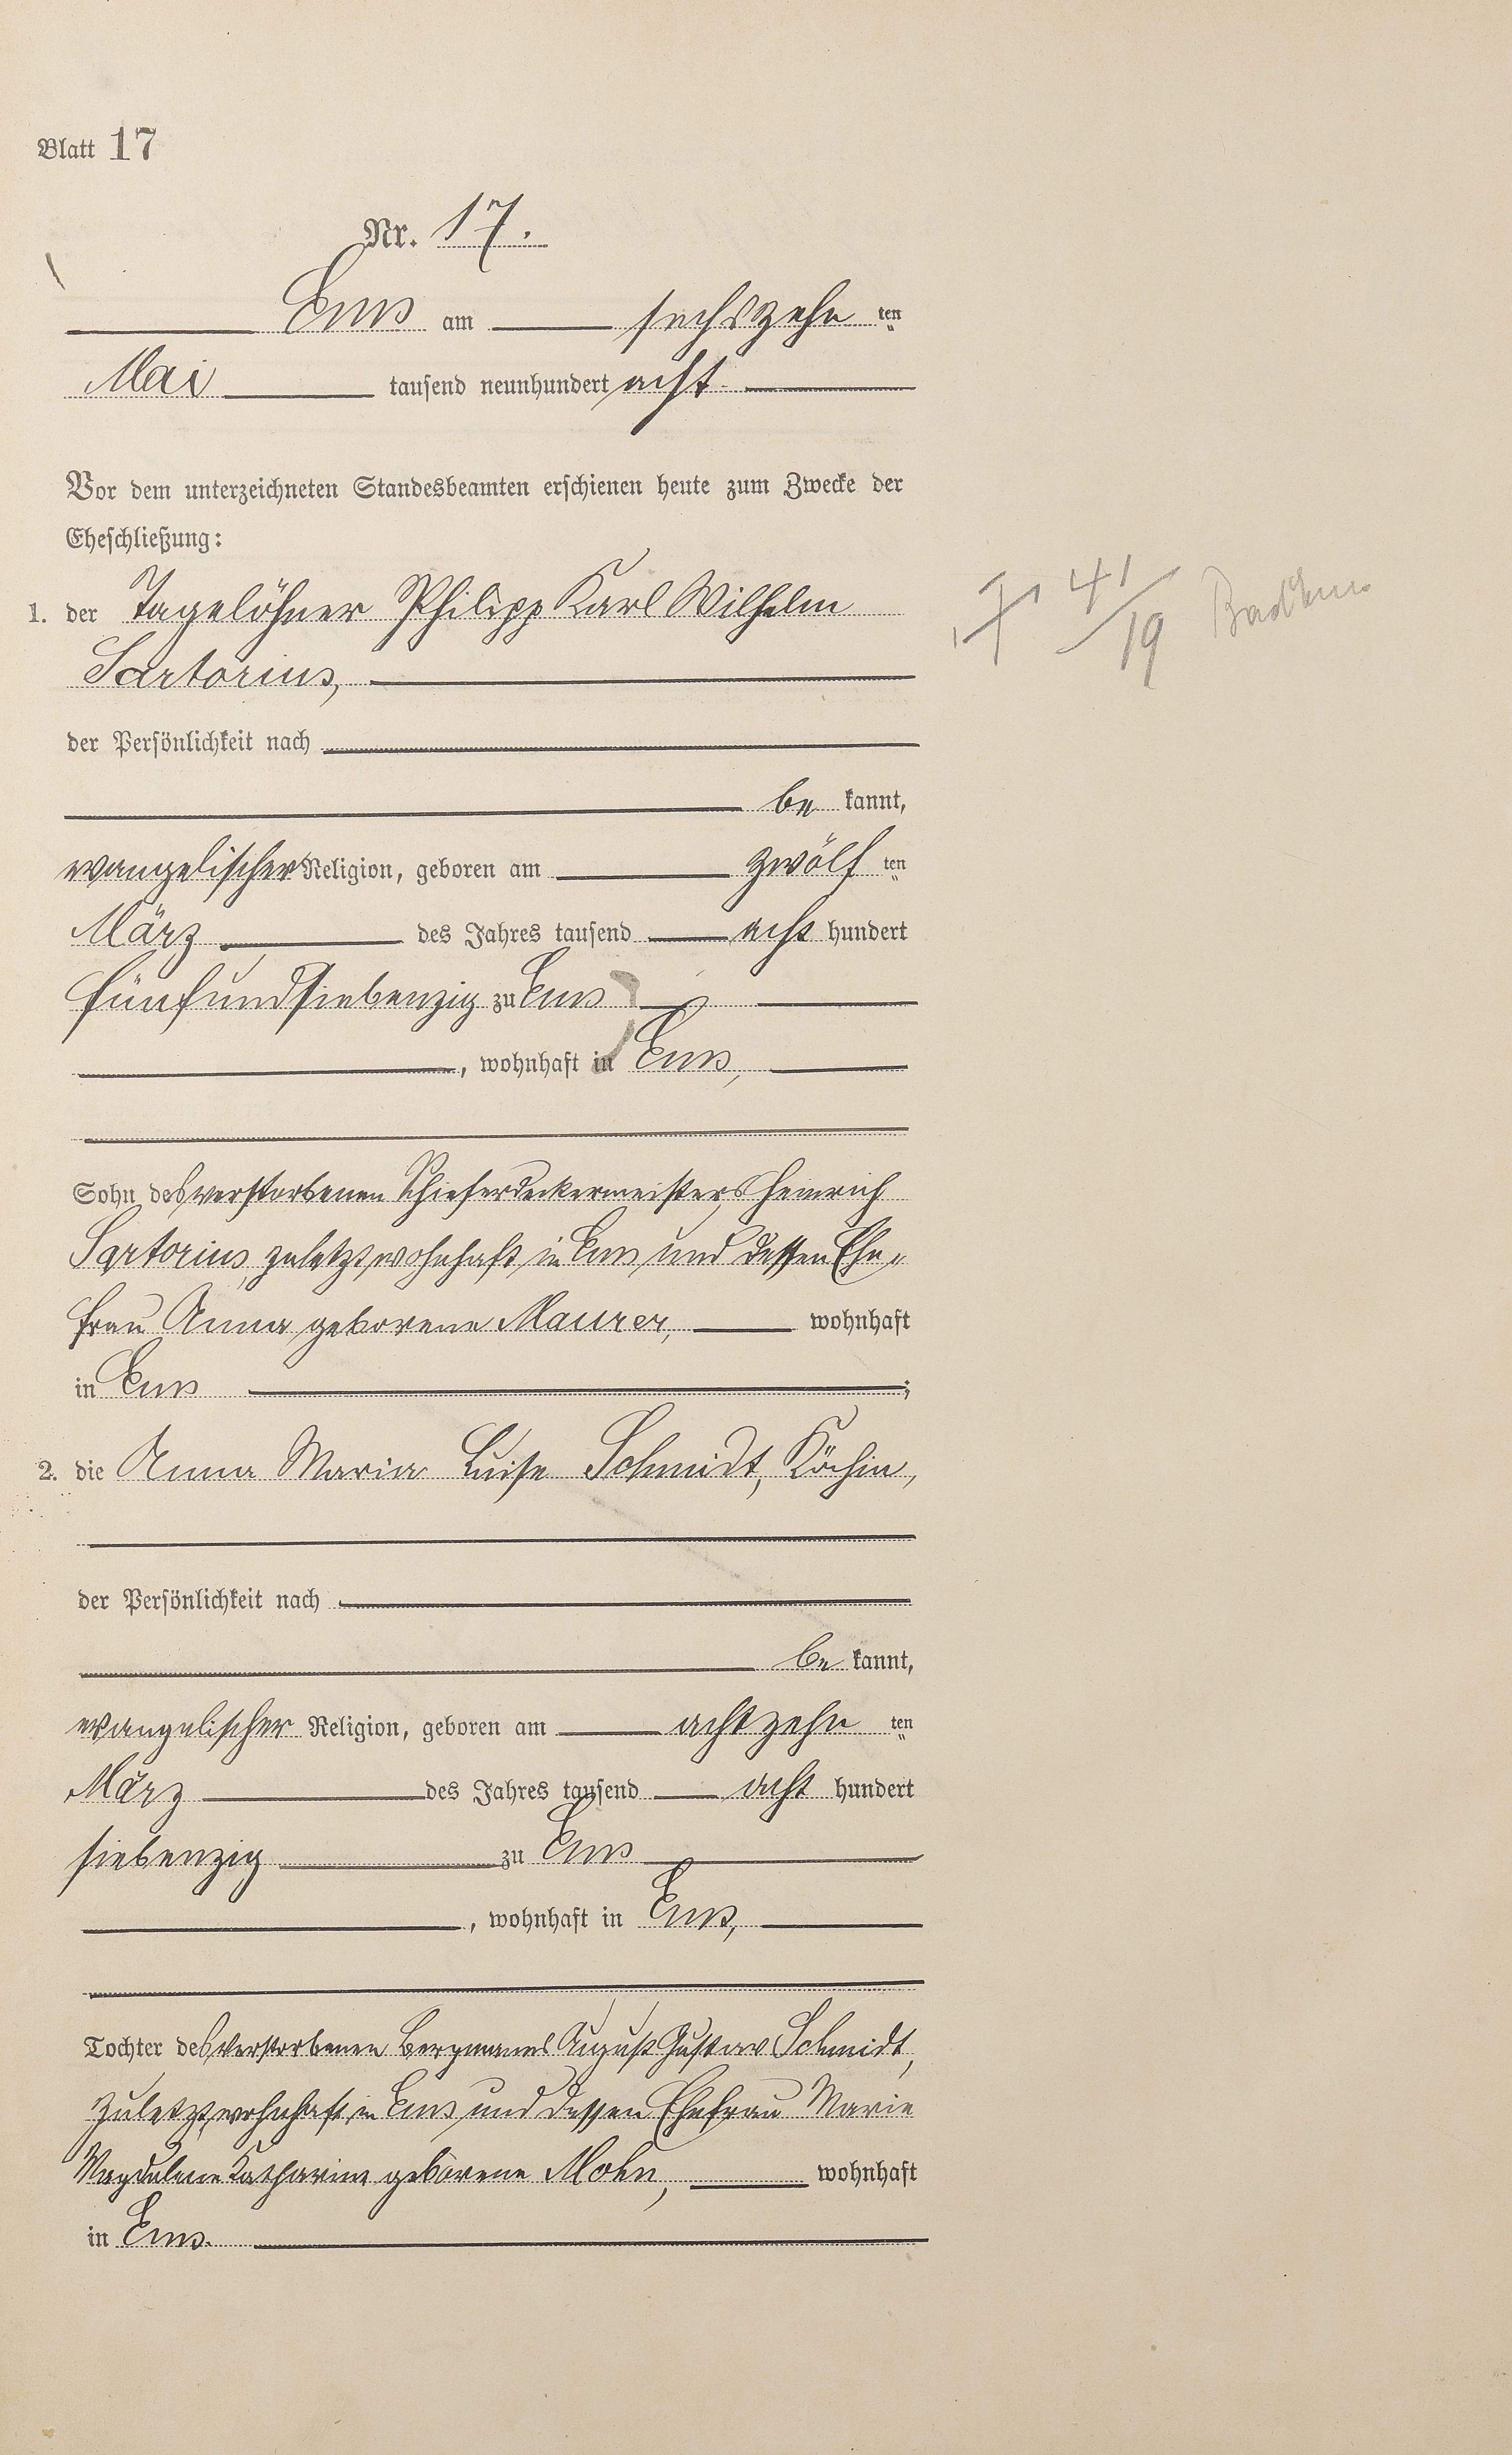 Blatt 17
Nr. 17.
Ems am sechszehn ten
Mai tausend neunhundert acht
Vor dem unterzeichneten Standesbeamten erschienen heute zum Zwecke der
Eheschließung:
1. der Tagelöhner Philipp Karl Wilhelm
Sartorius,
der Persönlichkeit nach
be kannt,
evangelischer Religion, geboren am zwölf ten
März des Jahres tausend acht hundert
fünfundsiebenzig zu Ems
, wohnhaft in Ems,
Sohn des verstorbenen Schieferdeckermeisters Heinrich
Sartorius, zuletzt wohnhaft in Ems und dessen Ehe-
frau Anna geborene Maurer, wohnhaft
in Ems ;
2. die Anna Maria Luise Schmidt, Köchin,
der Persönlichkeit nach
be kannt,
evangelischer Religion, geboren am achtzehn ten
März des Jahres tausend acht hundert
siebenzig zu Ems
, wohnhaft in Ems,
Tochter des verstorbenen Bergmanns August Gustav Schmidt,
zuletzt wohnhaft in Ems und dessen Ehefrau Marie
Magdalene Katharine geborene Mohn, wohnhaft
in Ems.
41/19 Bad Ems